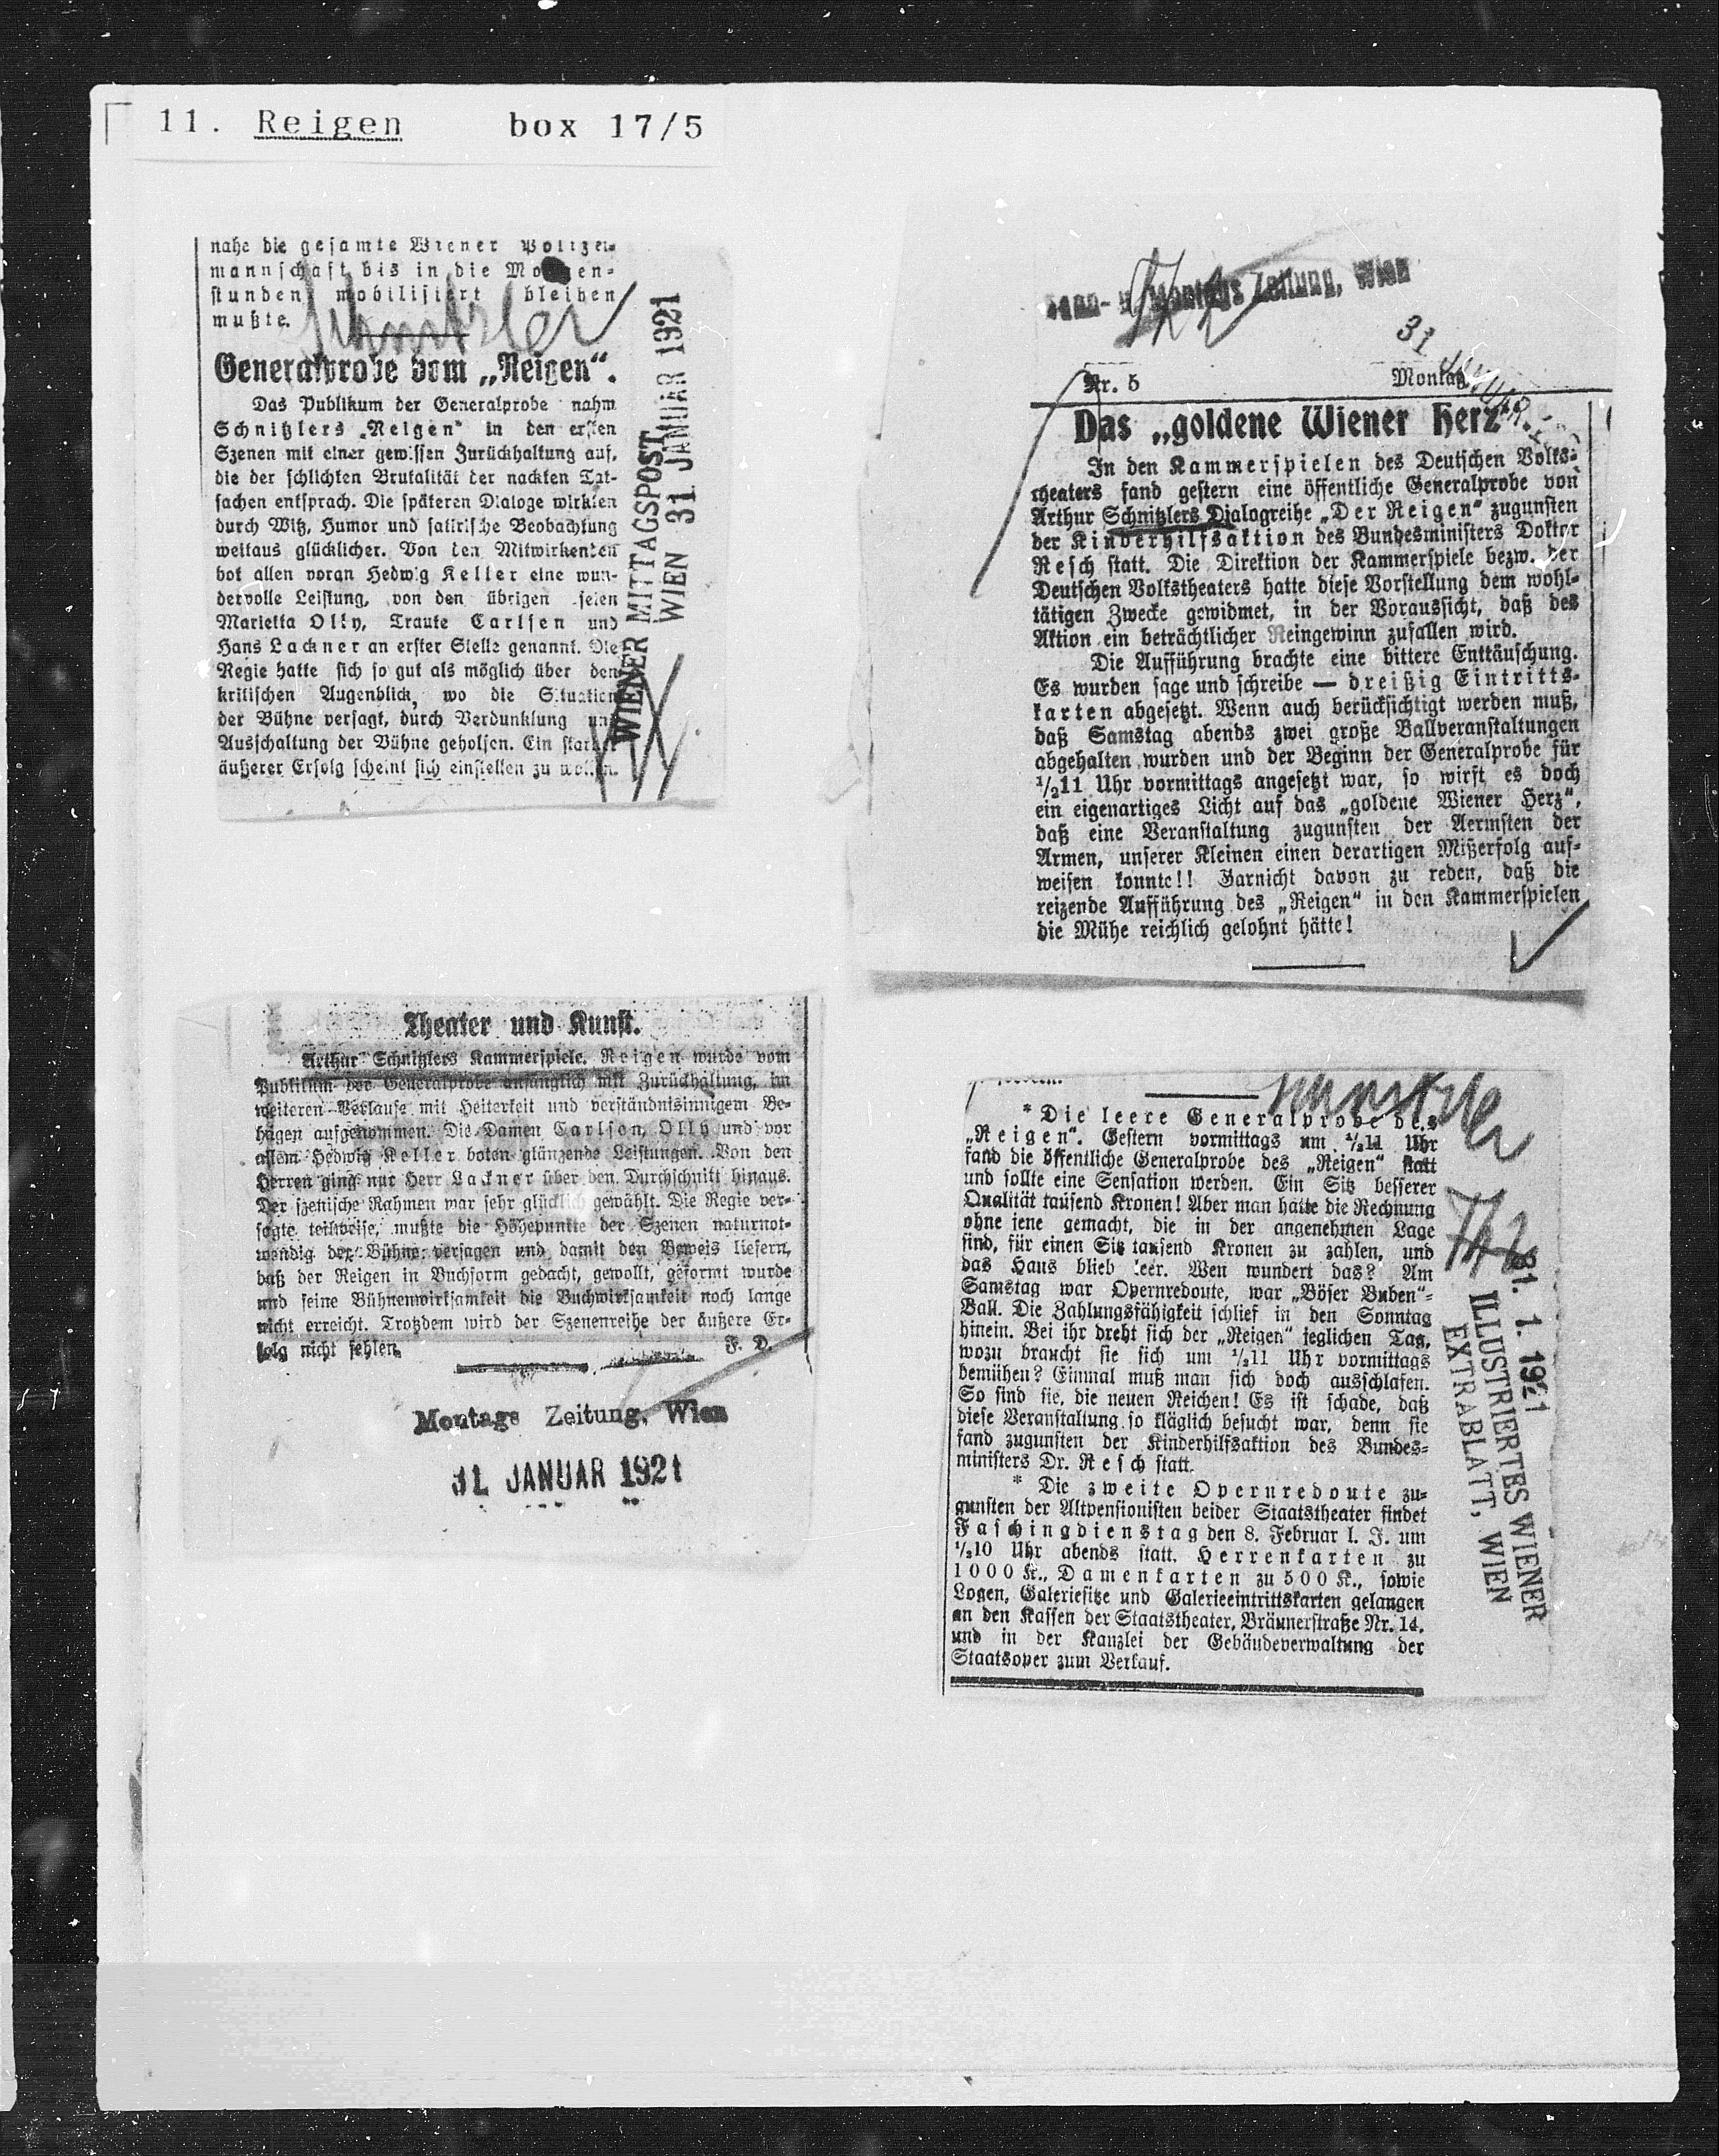 11. Reigen box 17/5
nahe die gesamte Wiener Polizei-
mannschaft bis in die Morgen-
stunden mobilisiert bleiben
mußte.
Schnitzler
Generalprobe vom „Reigen“.
Das Publikum der Generalprobe nahm
Schnitzlers „Reigen“ in den ersten
Szenen mit einer gewissen Zurückhaltung auf,
die der schlichten Brutalität der nackten Tat-
sachen entsprach. Die späteren Dialoge wirkten
durch Witz, Humor und satirische Beobachtung
weitaus glücklicher. Von den Mitwirkenden
bot allen voran Hedwig Keller eine wun-
dervolle Leistung, von den übrigen seien
Marietta Olly, Traute Carlsen und
Hans Lackner an erster Stelle genannt. Die
Regie hatte sich so gut als möglich über den
kritischen Augenblick, wo die Situation
der Bühne versagt, durch Verdunklung und
Ausschaltung der Bühne geholfen. Ein starker
äußerer Erfolg scheint sich einstellen zu wollen.
WIENER MITTAGSPOST
WIEN 31 JANUAR 1921
Theater und Kunst.
Arthur Schnitzlers Kammerspiele. Reigen wurde vom
Publikum der Generalprobe anfänglich mit Zurückhaltung, im
weiteren Verlaufe mit Heiterkeit und verständnisinnigem Be-
hagen aufgenommen. Die Damen Carlsen, Olly und vor
allem Hedwig Keller boten glänzende Leistungen. Von den
Herren ging nur Herr Lackner über den Durchschnitt hinaus.
Der szenische Rahmen war sehr glücklich gewählt. Die Regie ver-
sagte teilweise, mußte die Höhepunkte der Szenen naturnot-
wendig der Bühne versagen und damit den Beweis liefern,
daß der Reigen in Buchform gedacht, gewollt, geformt wurde
und seine Bühnenwirksamkeit die Buchwirksamkeit noch lange
nicht erreicht. Trotzdem wird der Szenenreihe der äußere Er-
folg nicht fehlen.
F. D.
Montags Zeitung, Wien
31. JANUAR 1921
Montags Zeitung, Wien
31 JANUAR
Nr. 5 Montag,
Das „goldene Wiener Herz“.
In den Kammerspielen des Deutschen Volks-
theaters fand gestern eine öffentliche Generalprobe von
Arthur Schnitzlers Dialogreihe „Der Reigen“ zugunsten
der Kinderhilfsaktion des Bundesministers Doktor
Resch statt. Die Direktion der Kammerspiele bezw. der
Deutschen Volkstheaters hatte diese Vorstellung dem wohl-
tätigen Zwecke gewidmet, in der Voraussicht, daß des
Aktion ein beträchtlicher Reingewinn zufallen wird.
Die Aufführung brachte eine bittere Enttäuschung.
Es wurden sage und schreibe — dreißig Eintritts-
karten abgesetzt. Wenn auch berücksichtigt werden muß,
daß Samstag abends zwei große Ballveranstaltungen
abgehalten wurden und der Beginn der Generalprobe für
½11 Uhr vormittags angesetzt war, so wirft es doch
ein eigenartiges Licht auf das „goldene Wiener Herz“,
daß eine Veranstaltung zugunsten der Aermsten der
Armen, unserer Kleinen einen derartigen Mißerfolg auf-
weisen konnte!! Garnicht davon zu reden, daß die
reizende Aufführung des „Reigen“ in den Kammerspielen
die Mühe reichlich gelohnt hätte!
Schnitzler
* Die leere Generalprobe des
„Reigen“. Gestern vormittags um ½11 Uhr
fand die öffentliche Generalprobe des „Reigen“ statt
und sollte eine Sensation werden. Ein Sitz besserer
Qualität tausend Kronen! Aber man hatte die Rechnung
ohne jene gemacht, die in der angenehmen Lage
sind, für einen Sitz tausend Kronen zu zahlen, und
das Haus blieb leer. Wen wundert das? Am
Samstag war Opernredoute, war „Böser Buben“-
Ball. Die Zahlungsfähigkeit schlief in den Sonntag
hinein. Bei ihr dreht sich der „Reigen“ jeglichen Tag,
wozu braucht sie sich um ½11 Uhr vormittags
bemühen? Einmal muß man sich doch ausschlafen.
So sind sie, die neuen Reichen! Es ist schade, daß
diese Veranstaltung so kläglich besucht war, denn sie
fand zugunsten der Kinderhilfsaktion des Bundes-
ministers Dr. Resch statt.
* Die zweite Opernredoute zu-
gunsten der Altpensionisten beider Staatstheater findet
Faschingdienstag den 8. Februar l. J. um
½10 Uhr abends statt. Herrenkarten zu
1000 K., Damenkarten zu 500 K., sowie
Logen, Galeriesitze und Galerieeintrittskarten gelangen
an den Kassen der Staatstheater, Bräunerstraße Nr. 14,
und in der Kanzlei der Gebäudeverwaltung der
Staatsoper zum Verkauf.
31. 1. 1921
ILLUSTRIERTES WIENER
EXTRABLATT, WIEN